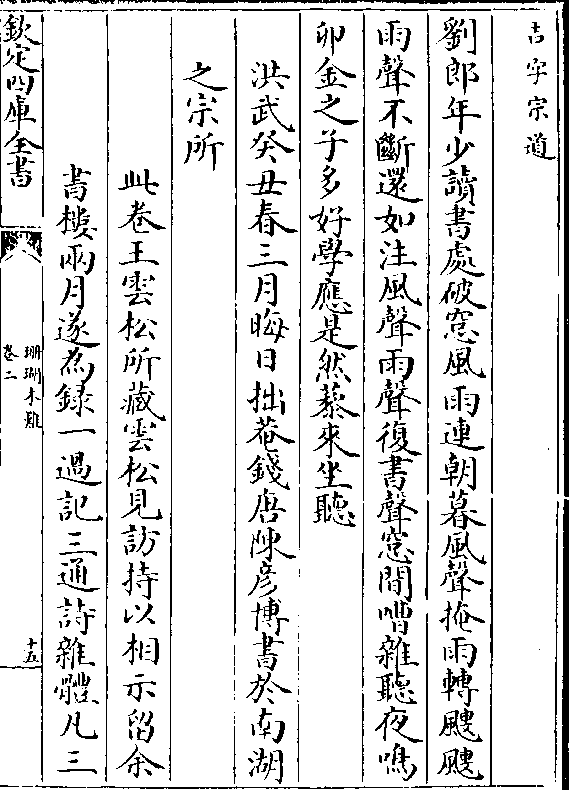 吉字宗道
劉郎年少讀書處破窓風雨連朝暮風聲掩雨轉颼颼
雨聲不斷還如注風聲雨聲復書聲窓間嘈雜聽夜鳴
卯金之子多好學應是然藜來坐聽
洪武癸丑春三月晦日拙菴錢唐陳彦博書於南湖
之宗所
此卷王雲松所藏雲松見訪持以相示留余
書樓兩月遂為錄一過記三通詩雜體凡三
欽定四庫全書
珊瑚木難
卷二
十五